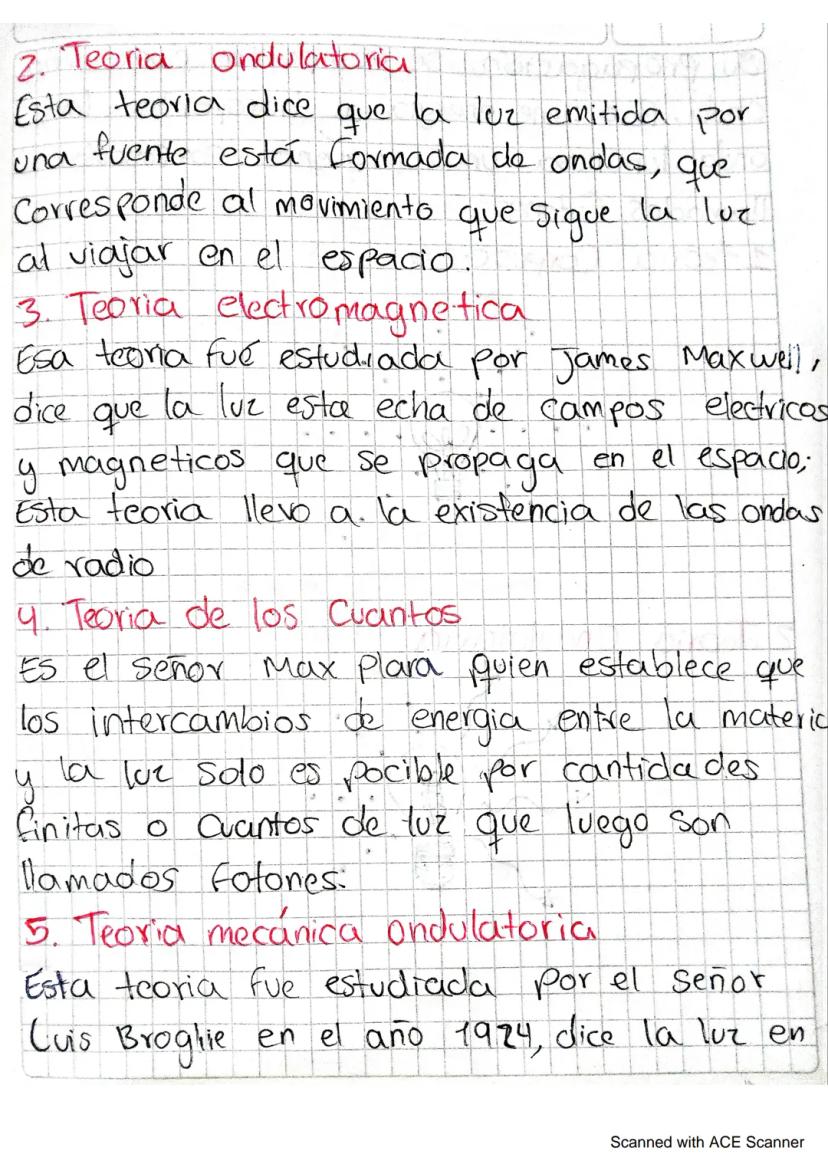 2. Teoria ondulatoria
Esta teoria dice que la luz emitida por
una fuente está formada de ondas, que
Corresponde al movimiento que sigue la luz
al viajar en el espacio.
3. Teoria electromagnetica
Esa teoria fué estudiada por James Maxwell,
dice que la luz esta echa de campos electricos
y magneticos que se propaga en el espacio;
Esta teoria llevo a la existencia de las ondas
de radio
4. Teoria de los Cuantos
Es el señor Max Plara quien establece que
los intercambios de energia entre la materia
y la luz solo es pocible por cantidades
finitas o cuantos de luz que luego son
llamados fotones.
5. Teoria mecánica ondulatoria
Esta teoria fue estudiada por el señor
Luis Broglie en el año 1924, dice la luz en
Scanned with ACE Scanner